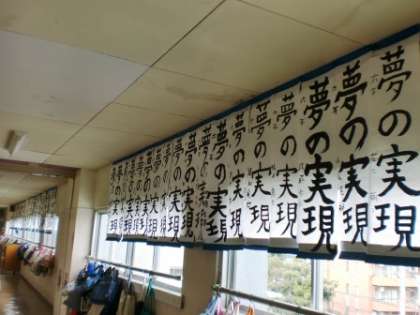 夢の実現
夢の実現
夢の実現
夢の実現
夢の実現
夢の実現
夢の実現
夢の実現
夢の実現
夢の実現
夢の実現
夢の実現
夢の実現
夢の実現